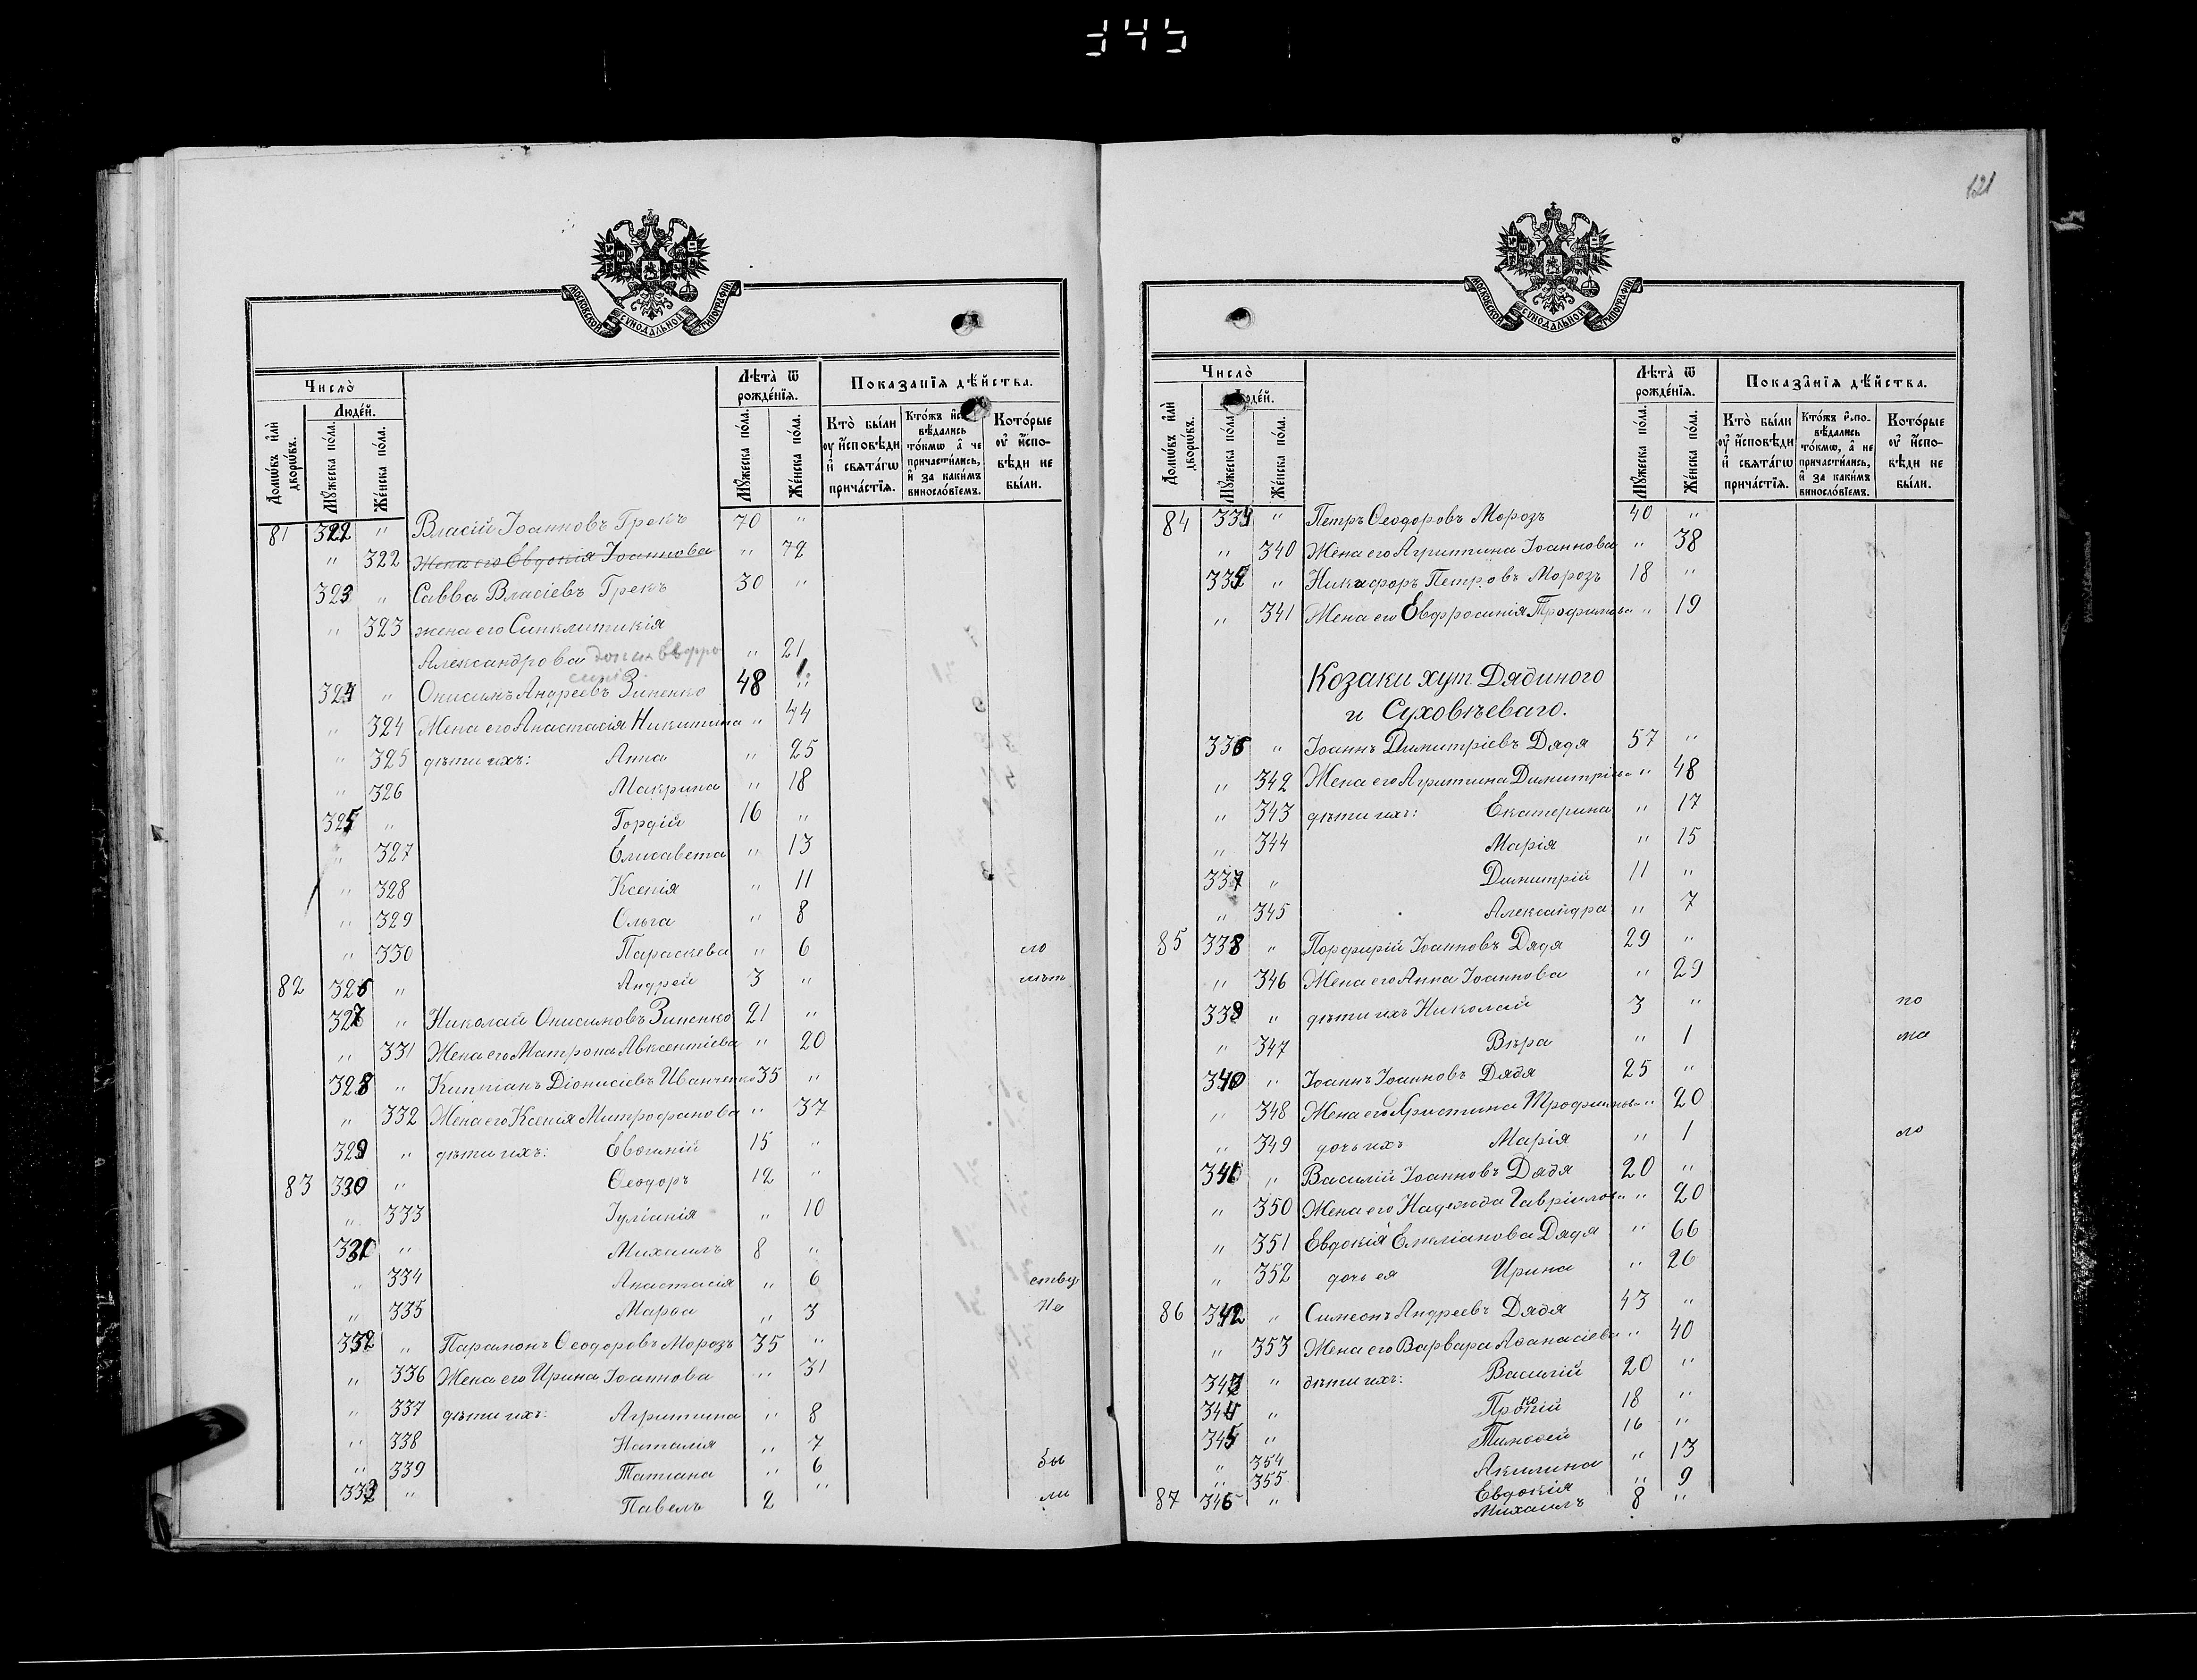 345
121
МОСКОВСКОЙ СѴНОДАЛЬНОЙ ТИПОГРАФІИ
Число̀
Лѣта̀ ѿ рожде́нїѧ.
Показанїѧ дѣ́йства.
Люде́й.
Домѡ́въ и҆лѝ дворѡ́въ.
Мꙋ́жеска по́ла.
Же́нска по́ла.
Мꙋ́жеска по́ла.
Же́нска по́ла.
Кто̀ были оу҆ и҆сповѣди и҆ свѧта́гѡ прича́стїѧ.
Кто́жъ и҆сповѣдались то́кмѡ а҆ не причасти́лись, и҆ за каки́мъ винословіемъ.
Кото́рые оу҆ и҆сповѣди не были.
81 322 " Власій Іоанновъ Грекъ 70 "
" 322 Жена его Евдокія Іоаннова " 72
323 " Савва Власіевъ Грекъ 30 "
" 323 жена его Синклитикія
Александрова " 21
324 " Онисимъ Андреевъ Зиненко 48 "
" 324 Жена его Анастасія Никитина " 44
" 325 дѣти ихъ: Анна " 25
" 326 Макрина " 18
325 " Гордій 16 "
" 327 Елисавета " 13
" 328 Ксенія " 11
" 329 Ольга " 8
" 330 Параскева " 6 ло
82 326 " Андрей 3 " лѣт
327 " Николай Онисимовъ Зиненко 21 "
" 331 Жена его Матрона Авксентіева " 20
328 " Кипріанъ Діонисіевъ Иванченко 35 "
" 332 Жена его Ксенія Митрофанова " 37
329 " дѣти ихъ: Евѳимій 15 "
83 330 " Ѳеодоръ 12 "
" 333 Іуліанія " 10
331 " Михаилъ 8 "
" 334 Анастасія " 6 ству
" 335 Марѳа " 3 Не
332 " Парамонъ Ѳеодоровъ Морозъ 35 "
" 336 Жена его Ирина Іоаннова " 31
" 337 дѣти ихъ: Агрипина " 8
" 338 Наталія " 7
" 339 Татіана " 6 бы
333 " Павелъ 2 " ли
Число̀
Лѣта̀ ѿ рожде́нїѧ.
Показа́нїѧ дѣ́йства.
Люде́й.
Домѡ́въ и҆лѝ дворѡ́въ.
Мꙋ́жеска по́ла.
Же́нска по́ла.
Мꙋ́жеска по́ла.
Же́нска по́ла.
Кто̀ были оу҆ и҆сповѣди и҆ свѧта́гѡ прича́стїѧ.
Кто́жъ и҆сповѣдались то́кмѡ, а҆ не причасти́лись, и҆ за каки́мъ винословіемъ.
Кото́рые оу҆ и҆сповѣди не были.
84 334 " Петръ Ѳеодоровъ Морозъ 40 "
" 340 Жена его Агрипина Іоаннова " 38
335 " Никифоръ Петровъ Морозъ 18 "
" 341 Жена его Евфросинія Трофимова " 19
Козаки хут Дядиного
и Суховѣеваго.
336 " Іоаннъ Димитріевъ Дядя 57 "
" 342 Жена его Агрипина Димитріева " 48
" 343 дѣти ихъ: Екатерина " 17
" 344 Марія " 15
337 " Димитрій 11 "
" 345 Александра " 7
85 338 " Порфирій Іоанновъ Дядя 29 "
" 346 Жена его Анна Іоаннова " 29
339 " дѣти ихъ Николай 3 " по
" 347 Вѣра " 1 ма
340 " Іоаннъ Іоанновъ Дядя 25 "
" 348 Жена его Христина Трофимова " 20
" 349 дочь ихъ Марія " 1 ло
341 " Василій Іоанновъ Дядя 20 "
" 350 Жена его Надежда Гавріилова " 20
" 351 Евдокія Емеліанова Дядя " 66
" 352 дочь ея Ирина " 26
86 342 " Симеонъ Андреевъ Дядя 43 "
" 353 Жена его Варвара Аѳанасіева " 40
343 " дѣти ихъ: Василій 20 "
344 " Прокопій 18 "
345 " Тимоѳей 16 "
" 354 Акилина " 13
" 355 Евдокія " 9
87 346 " Михаилъ 8 "